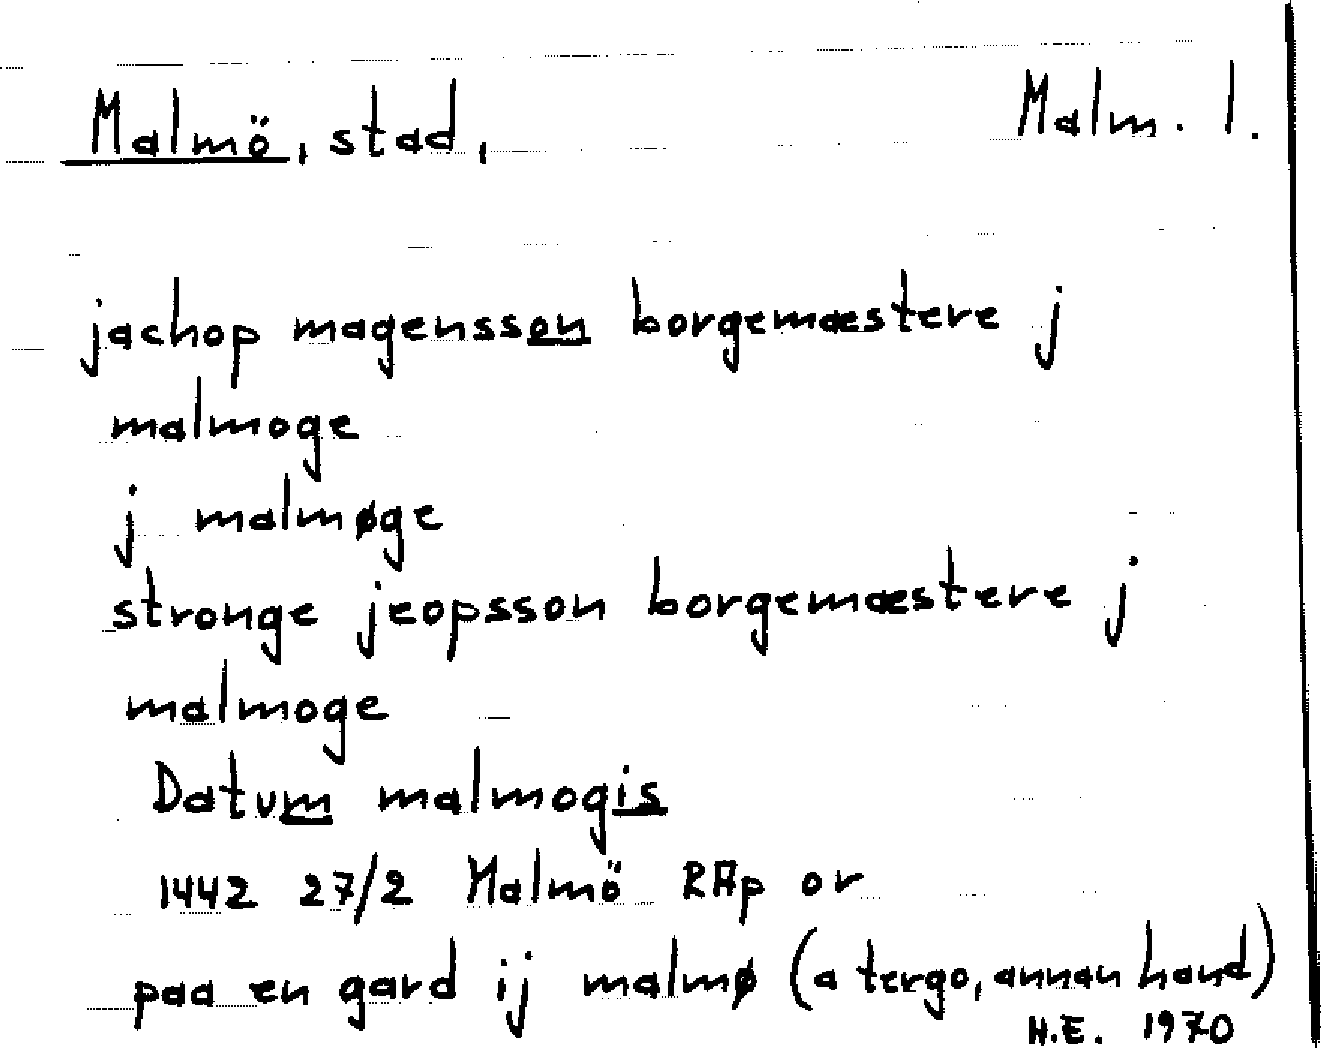 Malmö, stad, Malm. 1.
jachop magensson borgemæstere j
malmoge
j malmøge
stronge jeopsson borgemæstere j
malmoge
Datum malmogis
1442 27/2 Malmö RAp or
paa en gard ij malmø (a tergo, annan hand)
H.E. 1970